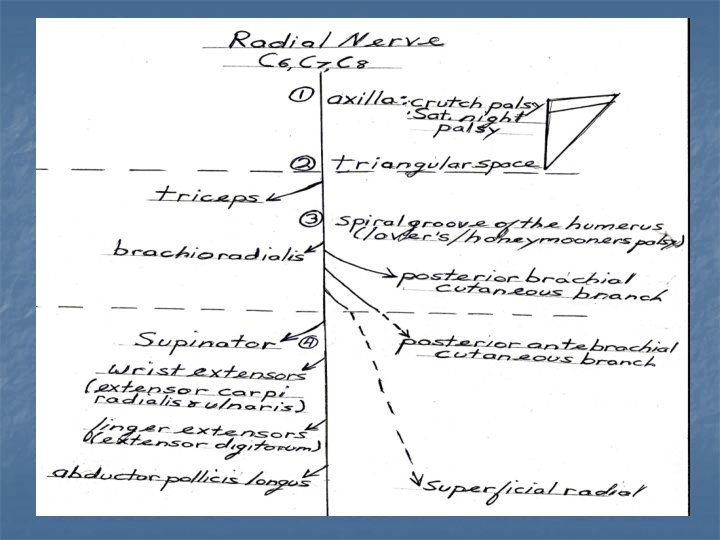 Radial Nerve
C6, C7, C8
① axilla: crutch palsy
Sat. night
palsy
② triangular space
triceps
③ Spiral groove of the humerus
(lover's/honeymooners palsy)
brachioradialis
posterior brachial
cutaneous branch
Supinator ④
posterior antebrachial
cutaneous branch
wrist extensors
(extensor carpi
radialis & ulnaris)
finger extensors
(extensor digitorum)
abductor pollicis longus
Superficial radial